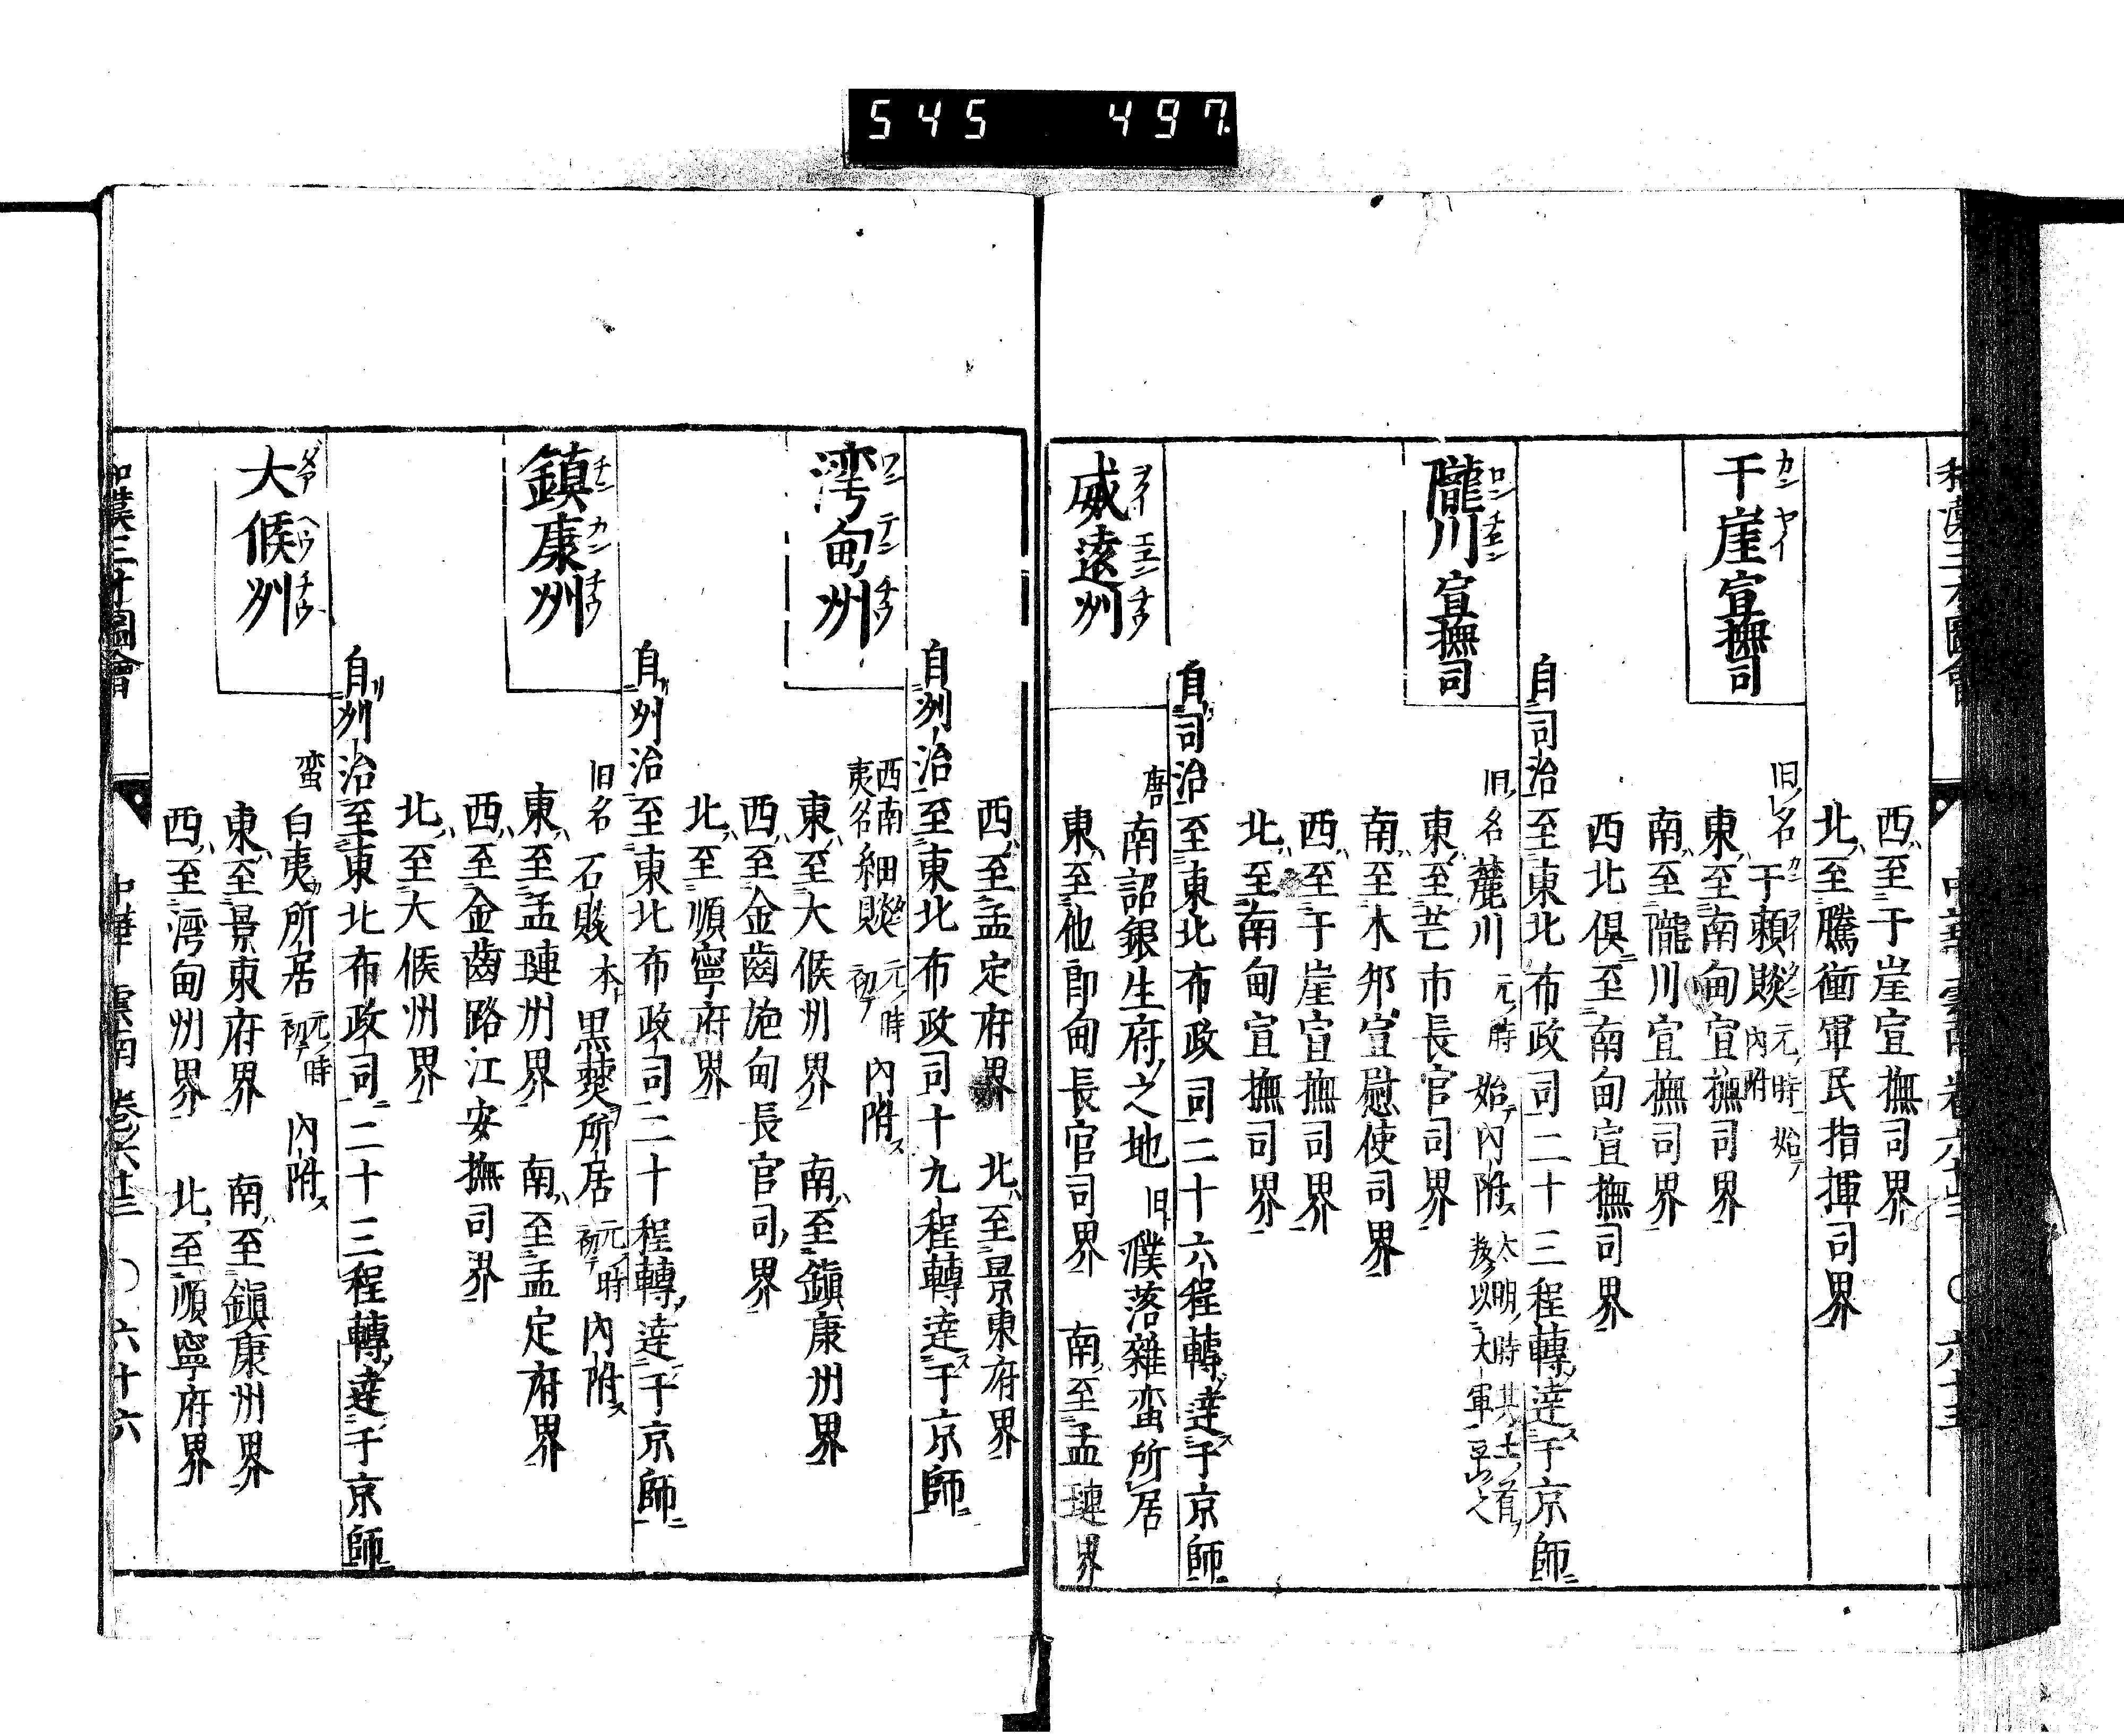 545 497
和漢三才圖會 中華 雲南 卷六十三 〇 六十五
西ハ至干崖宣撫司界
北ハ至騰衝軍民指揮司界
干崖宣撫司
カンヤイ
旧名于賴賧 元ノ時始テ內附
東ハ至南甸宣撫司界
南ハ至隴川宣撫司界
西北俱至南甸宣撫司界
自司治至東北布政司二十三程轉達于京師
隴川宣撫司
ロンチエン
旧名麓川 元ノ時始テ內附ス 大明ノ時其土酋 以大軍 之
東ハ至芒市長官司界
南ハ至木邦宣慰使司界
西ハ至于崖宣撫司界
北ハ至南甸宣撫司界
自司治至東北布政司二十六程轉達于京師
威遠州
ヲイエエンチウ
唐南詔銀生府之地 旧濮落雜蛮所居
東ハ至他郎甸長官司界 南至孟璉界
西ハ至孟定府界 北ハ至景東府界
自州治至東北布政司十九程轉達于京師
湾甸州
ワンテンチウ
西南夷名細賧 元ノ時初テ內附ス
東ハ至大候州界 南ハ至鎮康州界
西ハ至金齒施甸長官司界
北ハ至順寧府界
自州治至東北布政司二十程轉達于京師
鎮康州
チンカンチウ
旧名石賧 本黒僰所居 元ノ時初テ內附ス
東ハ至孟璉州界 南ハ至孟定府界
西ハ至金齒路江安撫司界
北ハ至大候州界
自州治至東北布政司二十三程轉達于京師
大候州
ダアヘウチウ
蛮白夷所居 元ノ時初テ內附ス
東ハ至景東府界 南ハ至鎮康州界
西ハ至湾甸州界 北ハ至順寧府界
和漢三才圖會 中華 雲南 卷六十三 〇 六十六